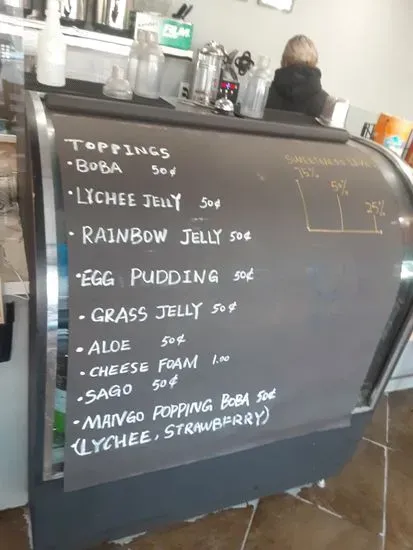 TOPPINGS
• BOBA 50¢
• LYCHEE JELLY 50¢
• RAINBOW JELLY 50¢
• EGG PUDDING 50¢
• GRASS JELLY 50¢
• ALOE 50¢
• CHEESE FOAM 1.00
• SAGO 50¢
• MANGO POPPING BOBA 50¢
(LYCHEE, STRAWBERRY)
SWEETNESS
75%
50%
25%